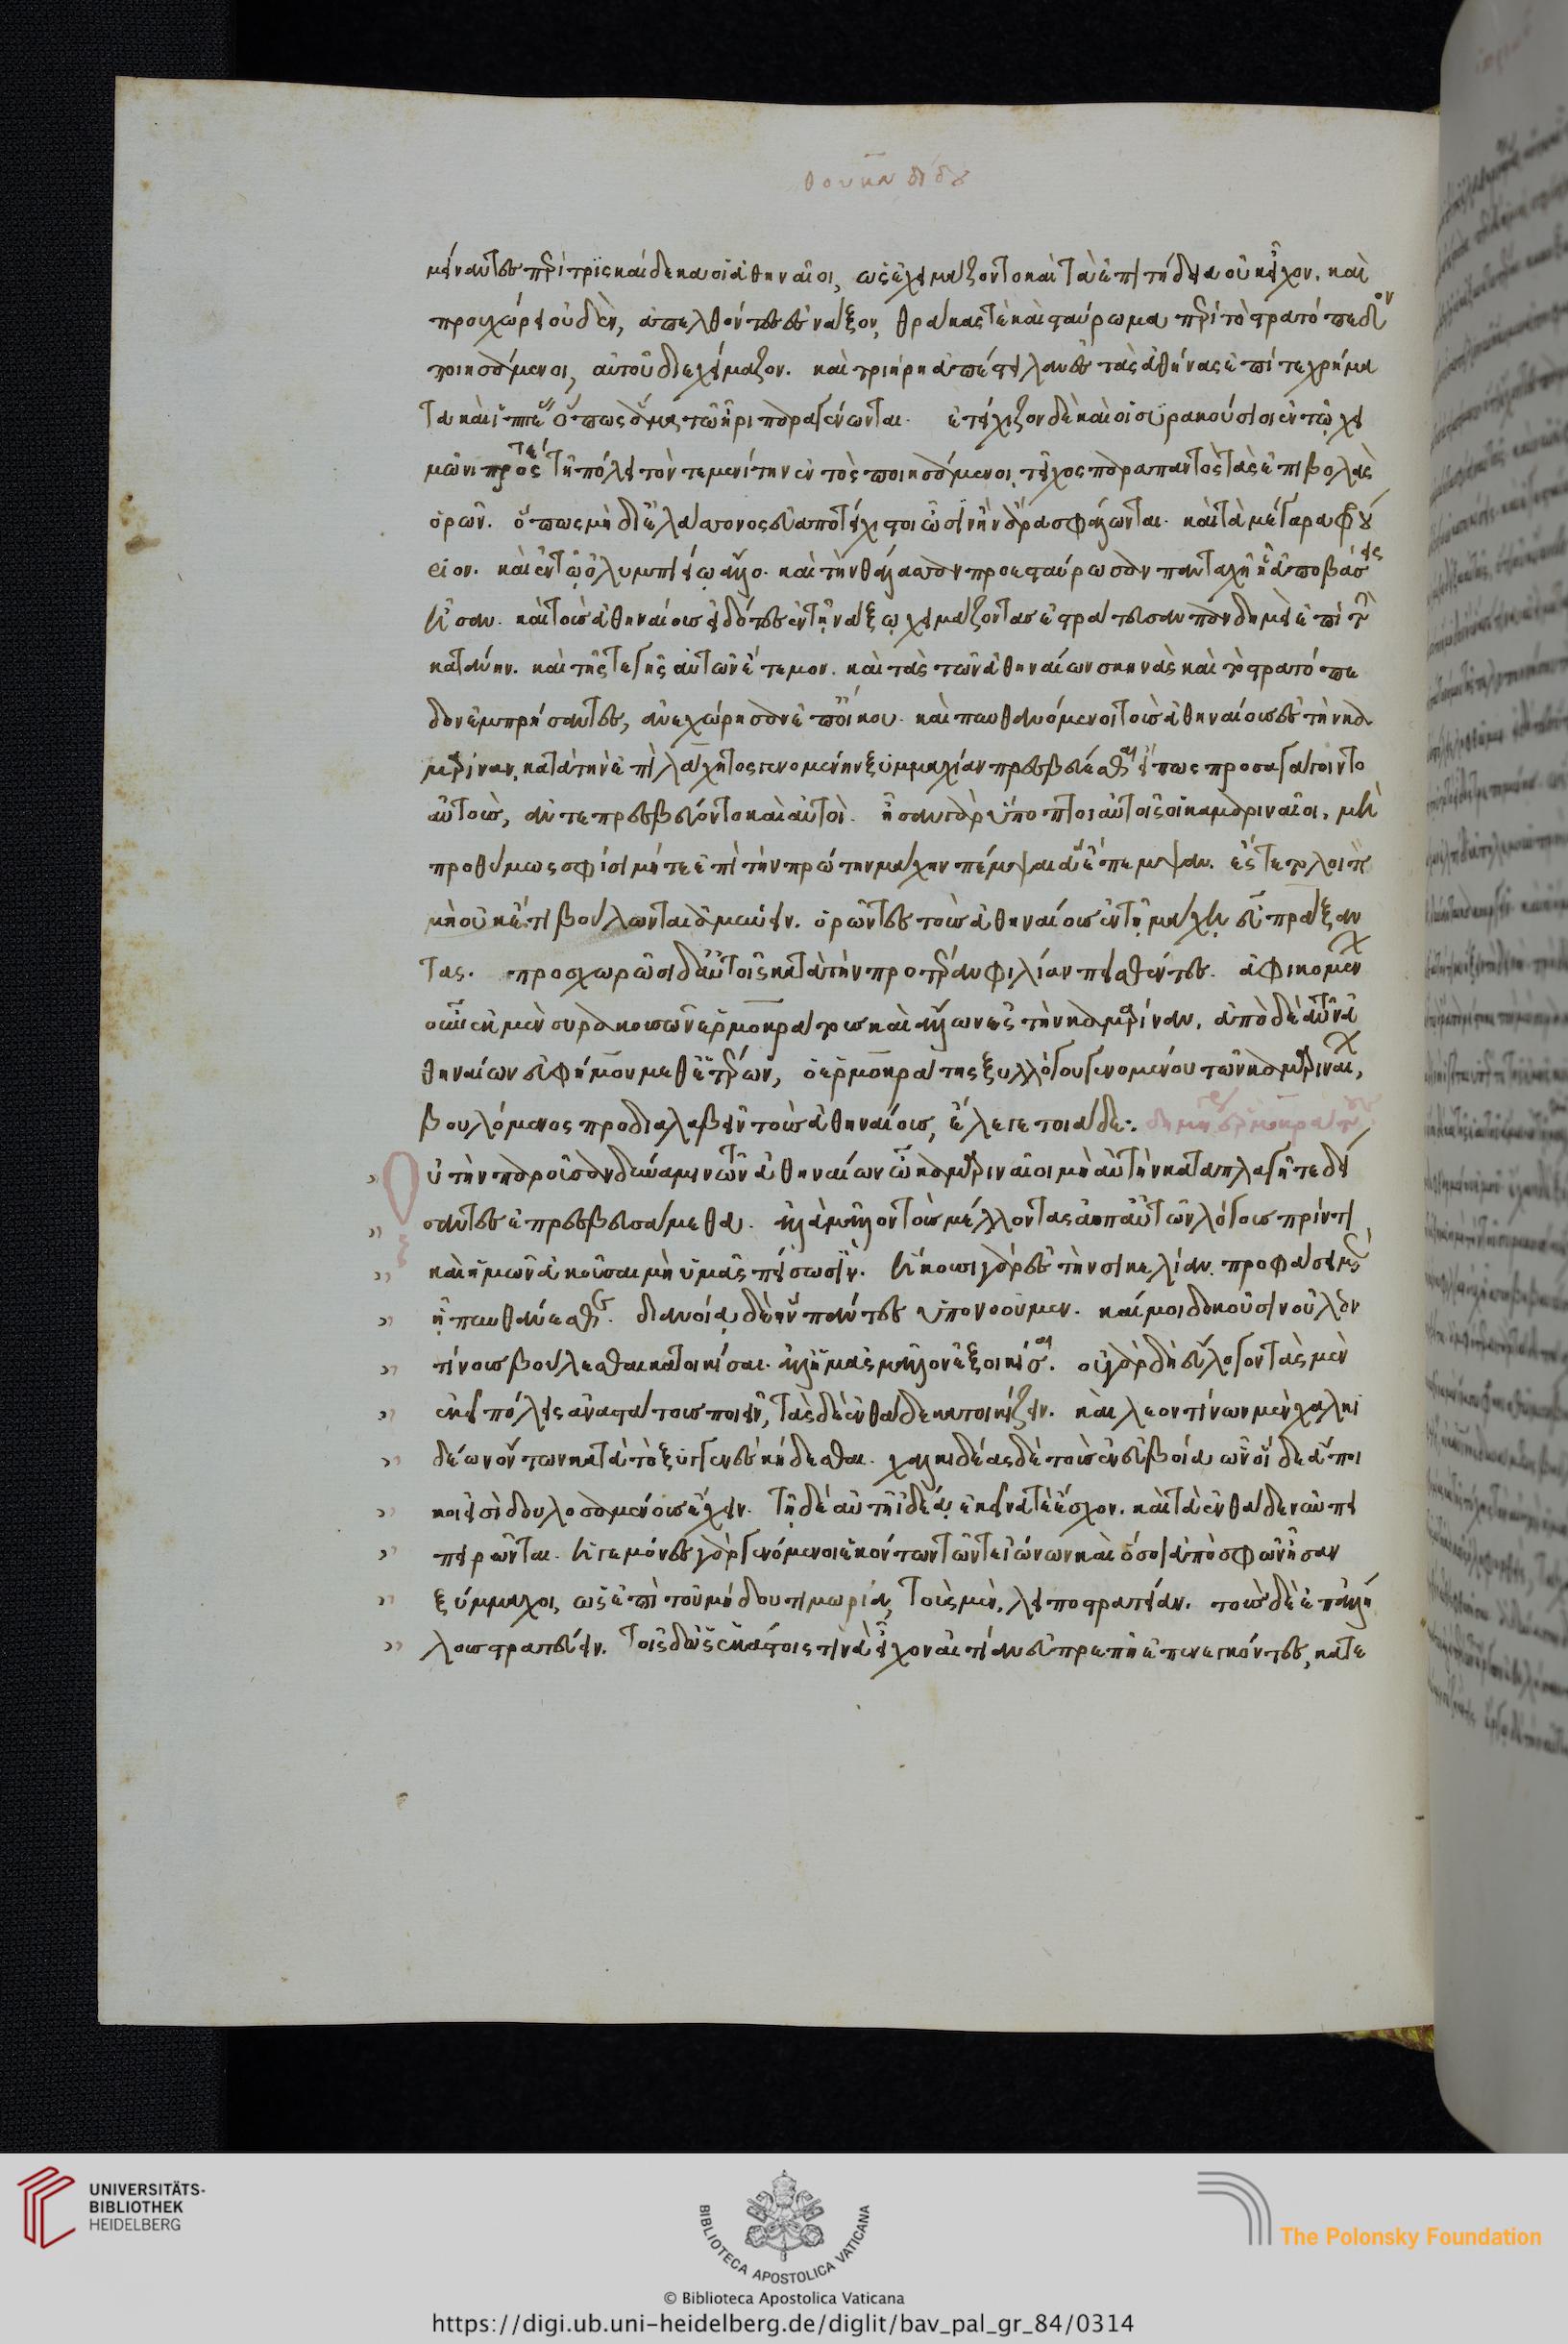 θουκυδίδου
μείναντες περὶ τρὶς καὶ δέκα οἱ ἀθηναῖοι, ὡς ἐχειμάζοντο καὶ τὰ ἐπιτήδεια οὐκ εἶχον. καὶ
προυχώρει οὐδὲν, ἀπελθόντες ἐς νάξον, θράκας τὲ καὶ σταύρωμα περὶ τὸ στρατόπεδον
ποιησάμενοι, αὐτοῦ διεχείμαζον. καὶ τριήρη ἀπέστειλαν ἐς τὰς ἀθήνας ἐπί τε χρήμα
τα καὶ ἱππέας ὅπως ἅμα τῶ ἦρι παραγένωνται. ἐτείχιζον δὲ καὶ οἱ συρακούσιοι ἐν τῷ χει
μῶνι πρός τε τῆ πόλει τὸν τεμενίτην ἐντὸς ποιησάμενοι, τεῖχος παρὰ πᾶν τὸ πρὸς τὰς ἐπιβολὰς
ὁρῶν. ὅπως μὴ δι' ἐλάσσονος εὐαποτείχιστοι ὦσιν ἢν ἄρα σφάλωνται. καὶ τὰ μέγαρα φρού
ριον. καὶ ἐν τῷ ὀλυμπιείῳ ἄλλο. καὶ τὴν θάλασσαν προεσταύρωσαν πανταχῆ ᾗ ἀποβάσεις
ἦσαν. καὶ τοὺς ἀθηναίους εἰδότες ἐν τῇ νάξῳ χειμάζοντας ἐστράτευσαν πανδημεὶ ἐπὶ τὴν
κατάνην. καὶ τῆς τε γῆς αὐτῶν ἔτεμον. καὶ τὰς τῶν ἀθηναίων σκηνὰς καὶ τὸ στρατόπε
δον ἐμπρήσαντες, ἀνεχώρησαν ἐπ' οἴκου. καὶ πυνθανόμενοι τοὺς ἀθηναίους ἐς τὴν κα
μάριναν, κατὰ τὴν ἐπὶ λάχητος γενομένην ξυμμαχίαν πρεσβεύεσθαι εἴπως προσαγάγοιντο
αὐτοὺς, ἀντεπρεσβεύοντο καὶ αὐτοὶ. ἦσαν γὰρ ὕποπτοι αὐτοῖς οἱ καμαριναῖοι, μὴ
προθύμως σφίσι μήτε ἐπὶ τὴν πρώτην μάχην πέμψαι ἃ ἔπεμψαν. ἔς τε τὸ λοιπὸν
μὴ οὐκέτι βούλωνται ἀμύνειν. ὁρῶντες τοὺς ἀθηναίους ἐν τῇ μάχῃ εὖ πράξαν
τας. προσχωρῶσι δ' αὐτοῖς κατὰ τὴν προτέραν φιλίαν πεισθέντες. ἀφικομένων
οὖν ἐκ μὲν συρακουσῶν ἑρμοκράτους καὶ ἄλλων ἐς τὴν καμάριναν, ἀπὸ δὲ τῶν ἀ
θηναίων εὐφήμου μεθ' ἑτέρων, ὁ ἑρμοκράτης ξυλλόγου γενομένου τῶν καμαριναίων,
βουλόμενος προδιαβαλεῖν τοὺς ἀθηναίους, ἔλεγε τοιάδε:.
Οὐ τὴν παροῦσαν δύναμιν τῶν ἀθηναίων ὦ καμαριναῖοι μὴ αὐτὴν καταπλαγῆτε δεί
σαντες ἐπρεσβευσάμεθα. ἀλλὰ μᾶλλον τοὺς μέλλοντας ἀπ' αὐτῶν λόγους πρίν τι
καὶ ἡμῶν ἀκοῦσαι μὴ ὑμᾶς πείσωσιν. ἥκουσι γὰρ ἐς τὴν σικελίαν. προφάσει μὲν
ᾗ πυνθάνεσθε. διανοίᾳ δὲ ἣν πάντες ὑπονοοῦμεν. καί μοι δοκοῦσιν οὐ λεον
τίνους βούλεσθαι κατοικίσαι. ἀλλ' ἡμᾶς μᾶλλον ἐξοικίσαι. οὐ γὰρ δὴ εὔλογον τὰς μὲν
ἐκεῖ πόλεις ἀναστάτους ποιεῖν, τὰς δὲ ἐνθάδε κατοικίζειν. καὶ λεοντίνων μὲν χαλκι
δέων ὄντων κατὰ τὸ ξυγγενὲς κήδεσθαι. χαλκιδέας δὲ τοὺς ἐν εὐβοίᾳ ὧν οἵδε ἄποι
κοι εἰσὶ δουλοσαμένους ἔχειν. τῇ δὲ αὐτῇ ἰδέᾳ ἐκεῖνά τε ἔσχον. καὶ τὰ ἐνθάδε νῦν πει
πειρῶνται. ἡγεμόνες γὰρ γενόμενοι ἑκόντων τῶν τε ἰώνων καὶ ὅσοι ἀπὸ σφῶν ἦσαν
ξύμμαχοι, ὡς ἐπὶ τοῦ μήδου τιμωρίᾳ, τοὺς μὲν, λειποστρατίαν. τοὺς δὲ ἐπ' ἀλλή
λους στρατεύειν. τοῖς δ' ὡς ἑκάστοις τινὰ εἶχον αἰτίαν εὐπρεπῆ ἐπενεγκόντες, κατε
UNIVERSITÄTS-
BIBLIOTHEK
HEIDELBERG
BIBLIOTECA APOSTOLICA VATICANA
The Polonsky Foundation
© Biblioteca Apostolica Vaticana
https://digi.ub.uni-heidelberg.de/diglit/bav_pal_gr_84/0314